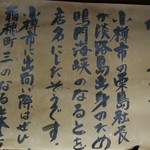 小樽市の粟島社長
が淡路島出身のため
鳴門海峡のなるとを
店名にしたそうです。
小樽市に出向い際はぜひ
稲穂町三のなる